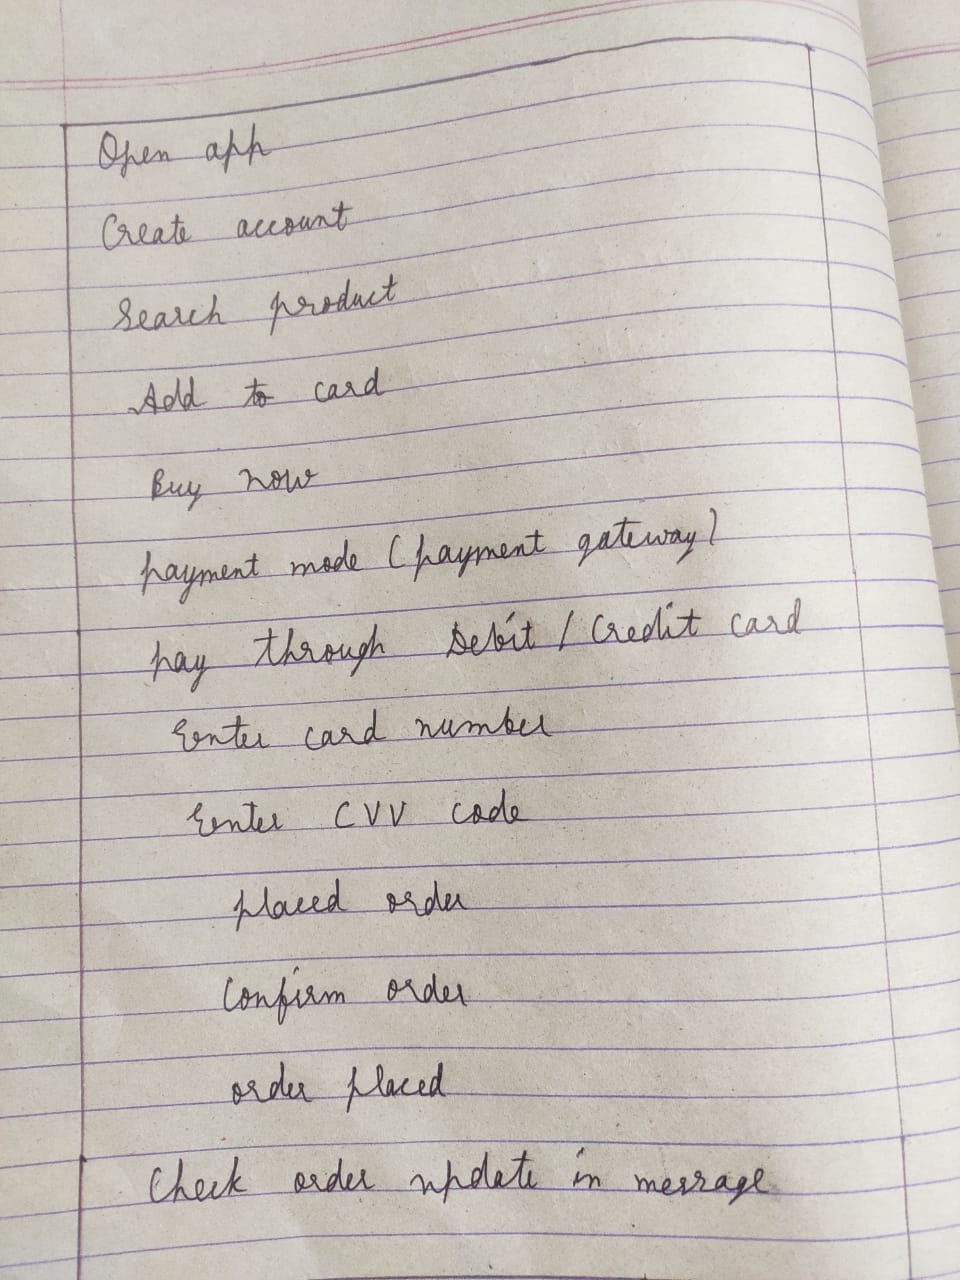 Open app
Create account
Search product
Add to card
Buy now
payment mode (payment gateway)
pay through Debit / Credit card
Eenter card number
Eenter CVV code
placed order
Confirm order
order placed
Check order update in message